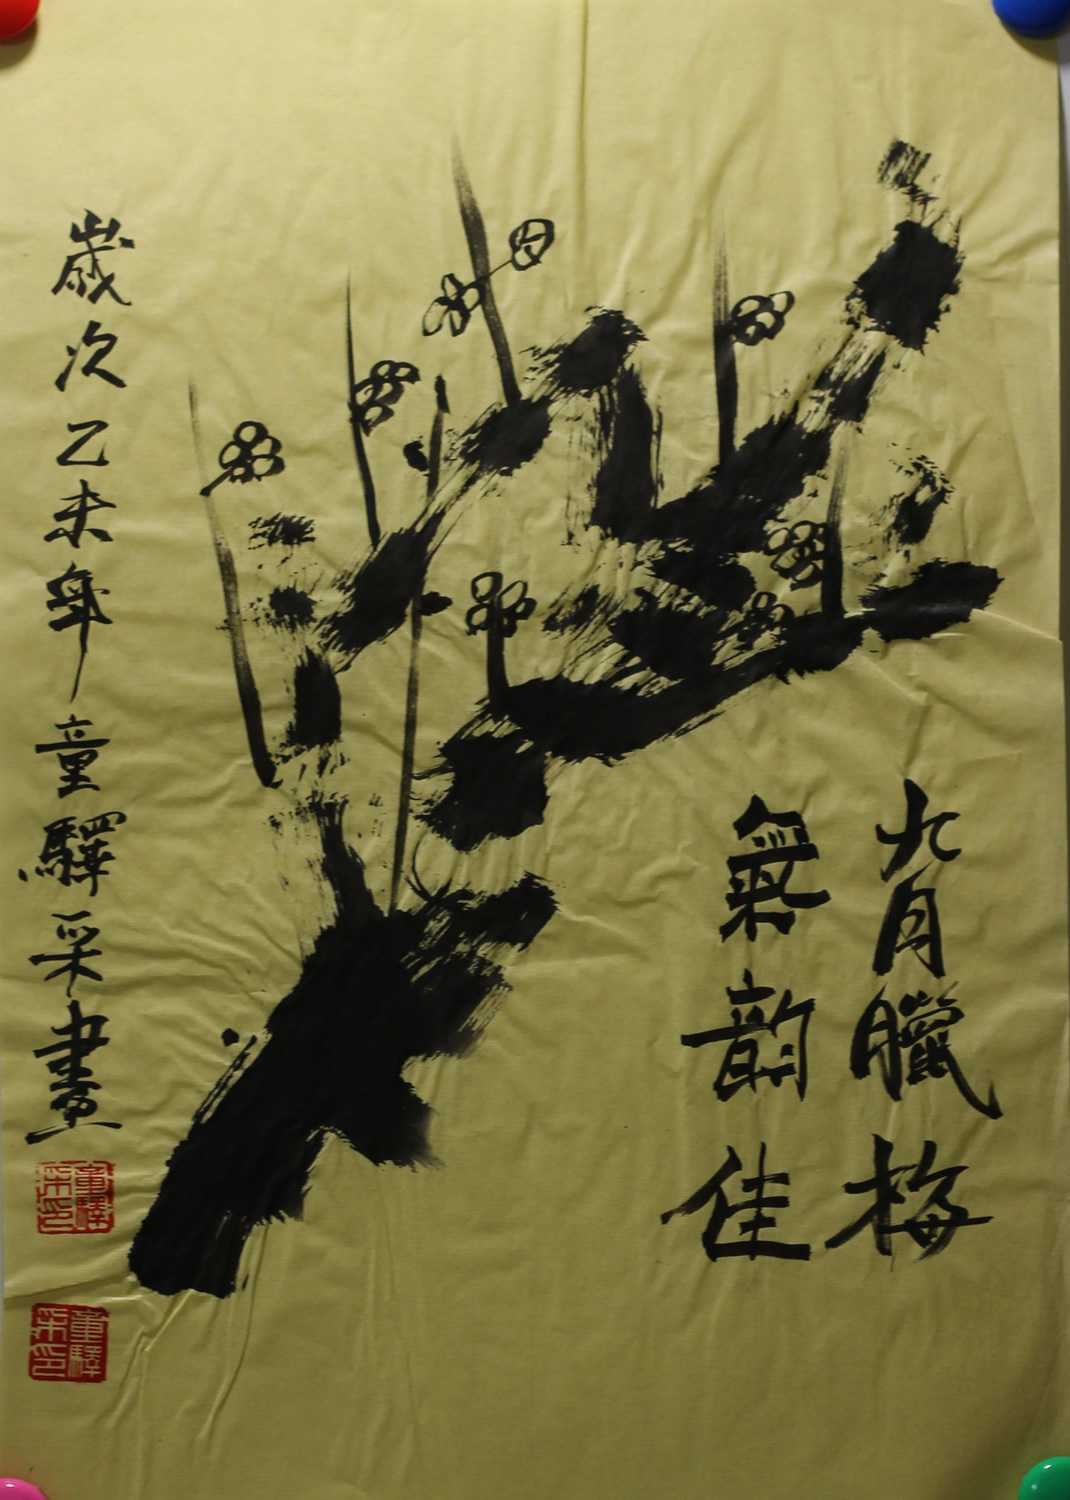 九月臘梅
氣韵佳
歲次乙未年童驛采畫
童驛采印
童驛采印